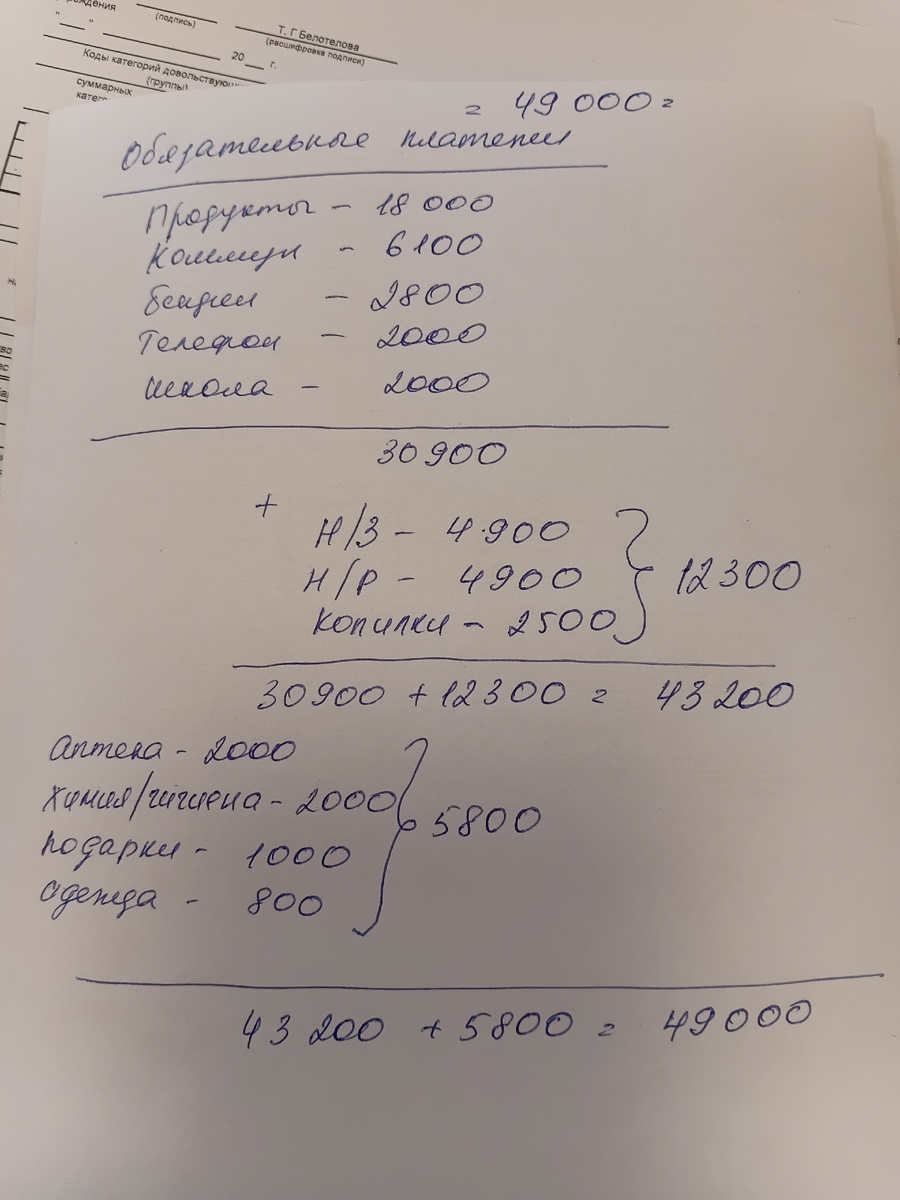 Т. Г Белотелова
(подпись)
(расшифровка подписи)
" " 20 г.
Коды категорий
(группы)
суммарных
= 49 000 =
Обязательные платежи
Продукты - 18 000
Коммун - 6100
Бензин - 2800
Телефон - 2000
школа - 2000
30 900
+
Н/З - 4900
Н/Р - 4900
копилки - 2500
12300
30900 + 12300 = 43 200
Аптека - 2000
химия/гигиена - 2000
подарки - 1000
одежда - 800
5800
43 200 + 5800 = 49 000